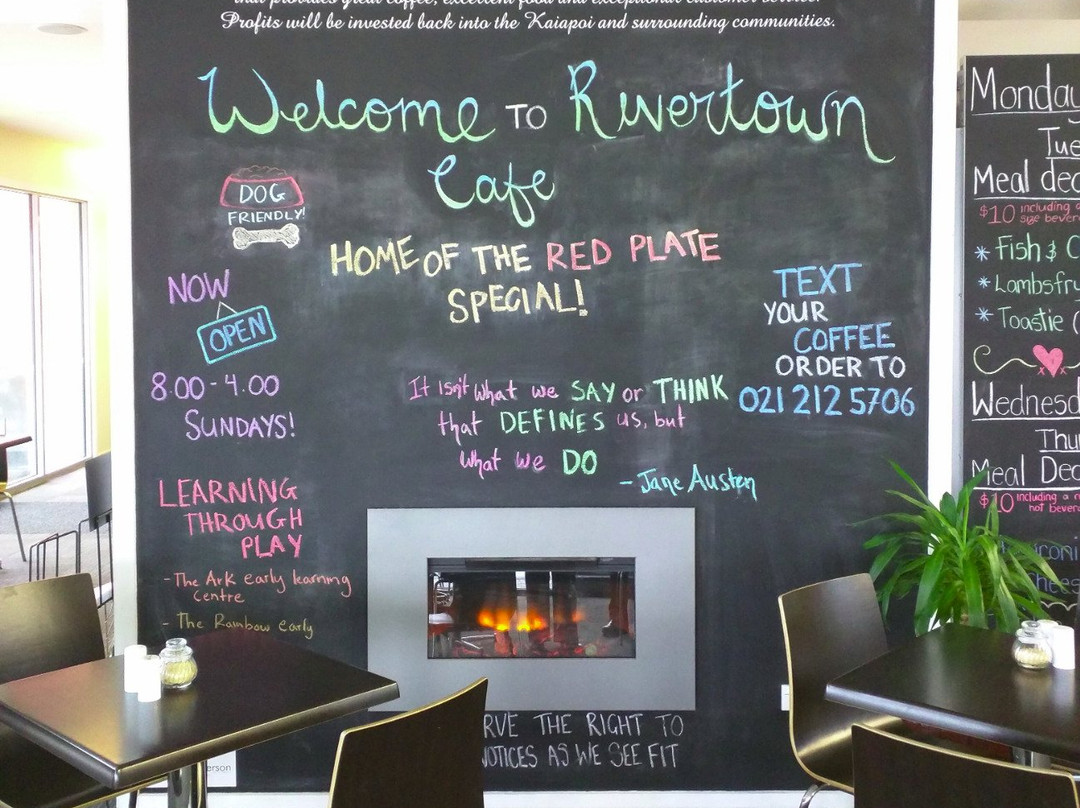 that provides great coffee, excellent food and exceptional customer service.
Profits will be invested back into the Kaiapoi and surrounding communities.
Welcome TO Rivertown
Cafe
DOG
FRIENDLY!
HOME OF THE RED PLATE
SPECIAL!
NOW
OPEN
8.00-4.00
SUNDAYS!
TEXT
YOUR
COFFEE
ORDER TO
021 212 5706
It isn't what we SAY or THINK
that DEFINES us, but
what we DO
- Jane Austen
LEARNING
THROUGH
PLAY
- The Ark early learning
Centre
- The Rainbow early
RVE THE RIGHT TO
NOTICES AS WE SEE FIT
erson
Monday
Tue
Meal dea
$10 including a
size bever
* Fish & C
* Lambsfry
* Toastie (
Wednesd
Thu
Meal Dea
$10 including a
hot bever